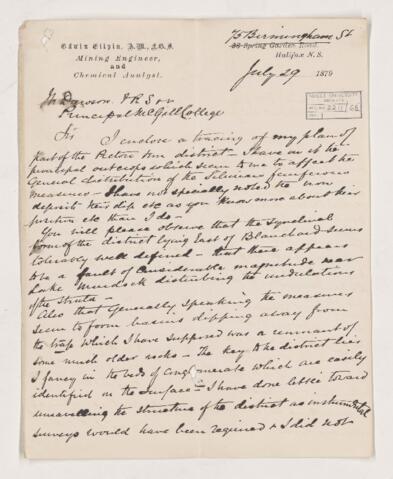 Edwin Gilpin, A.M., F.G.S.
Mining Engineer,
and
Chemical Analyst.
75 Birmingham St
38 Spring Garden Road.
Halifax N.S.
July 29 1879
Dawson
Principal McGill College
Sir I enclose a tracing of my plan of
part of the Pictou iron district - I have on it the
principal outcrops which seem to me to affect the
General distribution of the Silurian ferriferous
measures - I have not specially noted the iron
deposits their dip etc as you know more about their
position etc than I do -
You will please observe that the synclinal
form of the district lying East of Blanchard seems
tolerably well defined - that there appears
to be a fault of considerable magnitude near
Lake Murdock disturbing the undulations
of the strata -
Also that Generally speaking the measures
seem to form basins dipping away from
the trap which I have supposed was a remnant of
some much older rocks - The key to the district lies
I fancy in the beds of Conglomerate which are easily
identified on the surface - I have done little toward
unravelling the structure of the district as instrumental
surveys would have been required & I did not